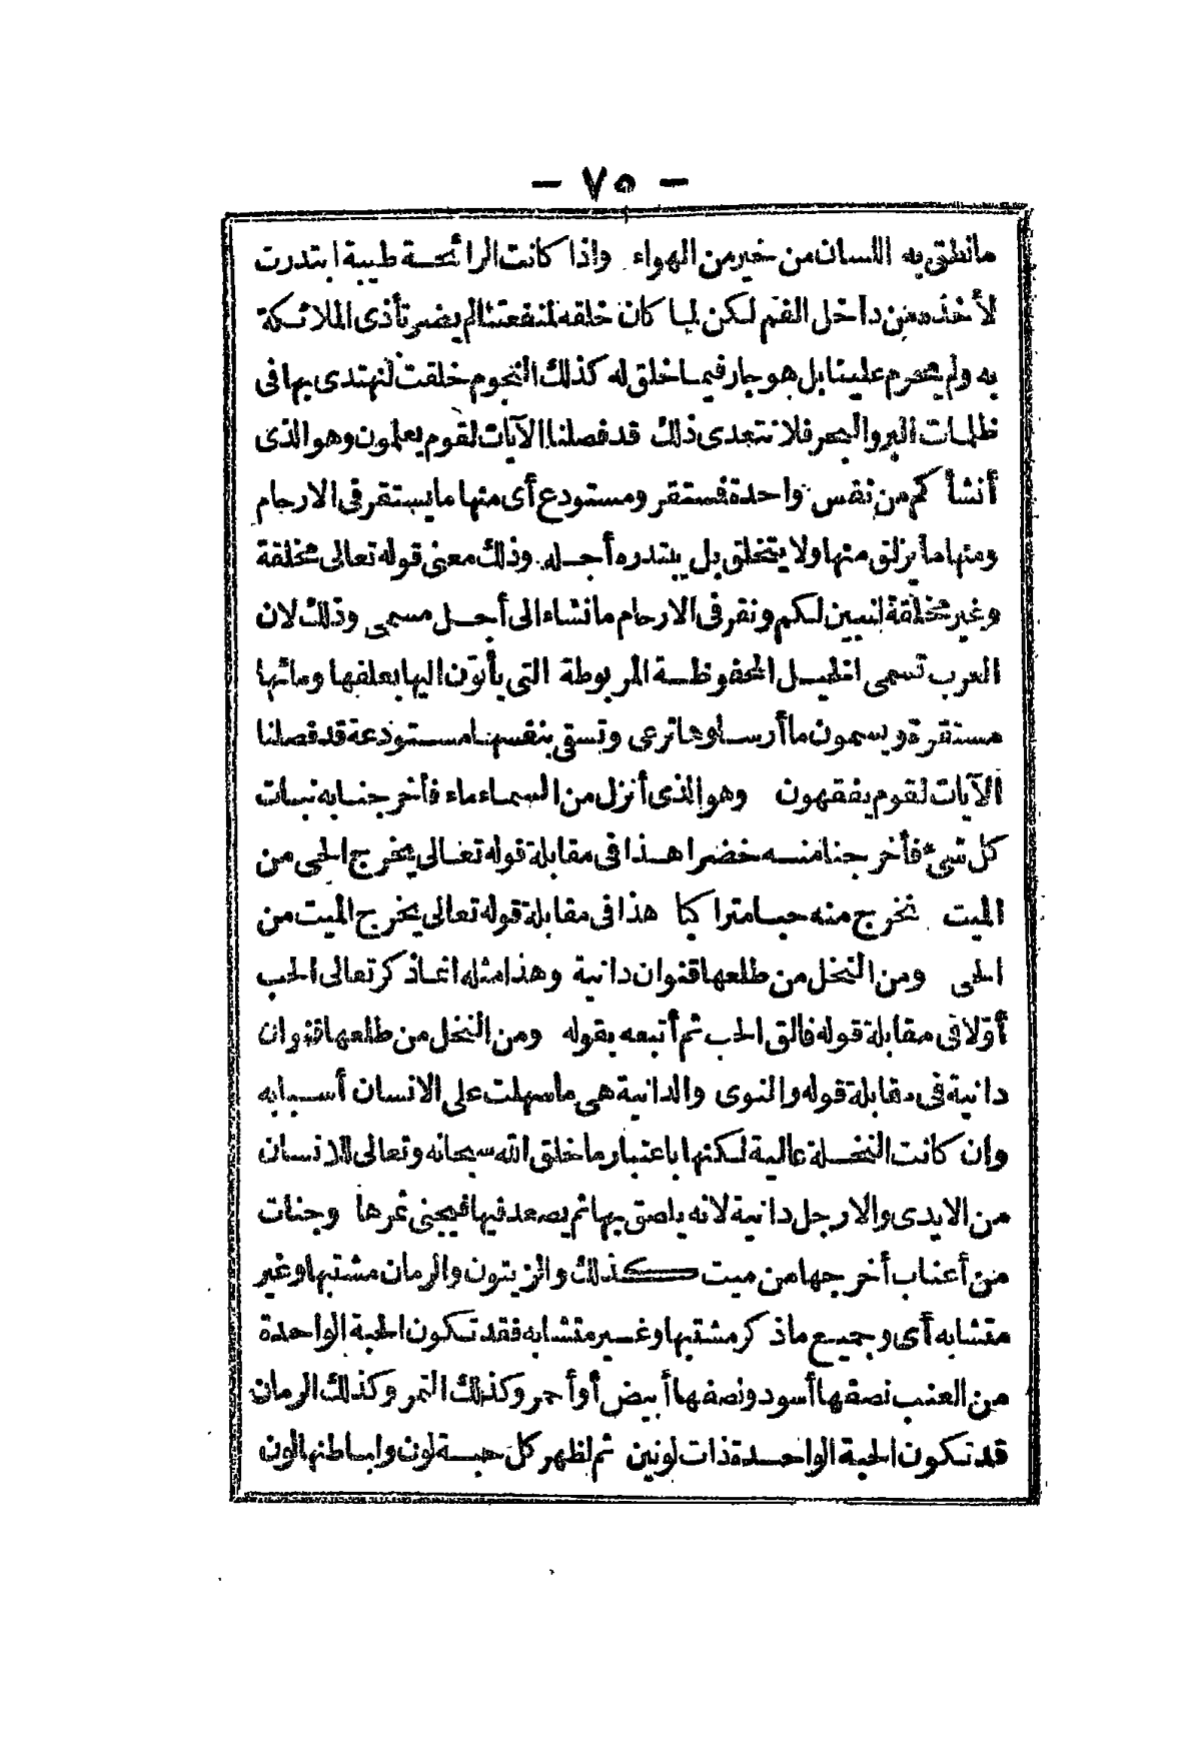 — ٧٥ —
مانطق به اللسان من خير من الهواء واذا كانت الرائحة طيبة ابتدرت
لأخذه من داخل الفم لكن لما كان خلقه لمنفعتنا لم يضر تأذى الملائكة
به ولم يحرم علينا بل هو جار فيما خلق له كذلك النجوم خلقت لنهتدى بها فى
ظلمات البر والبحر فلا نتعدى ذلك قد فصلنا الآيات لقوم يعلمون وهو الذى
أنشأكم من نفس واحدة فمستقر ومستودع أى منها ما يستقر فى الارحام
ومنها ما يزلق منها ولا يتخلق بل يبتدره أجله وذلك معنى قوله تعالى مخلقة
وغير مخلقة لنبين لكم ونقر فى الارحام ما نشاء الى أجل مسمى وذلك لان
العرب تسمى الخيل المحفوظة المربوطة التى يأتون اليها بعلفها ومائها
مستقرة ويسمون ما أرسلوها ترعى وتسقى بنفسها مستودعة قد فصلنا
الآيات لقوم يفقهون وهو الذى أنزل من السماء ماء فأخرجنا به نبات
كل شىء فأخرجنا منه خضرا هذا فى مقابلة قوله تعالى يخرج الحى من
الميت نخرج منه حبا متراكبا هذا فى مقابلة قوله تعالى يخرج الميت من
الحى ومن النخل من طلعها قنوان دانية وهذا مثله انما ذكر تعالى الحب
أولا فى مقابلة قوله فالق الحب ثم أتبعه بقوله ومن النخل من طلعها قنوان
دانية فى مقابلة قوله والنوى والدانية هى ما سهلت على الانسان أسبابه
وان كانت النخلة عالية لكنها باعتبار ما خلق الله سبحانه وتعالى للانسان
من الايدى والارجل دانية لانه يلصق بها ثم يصعد فيها فيجنى ثمرها وجنات
من أعناب أخرجها من ميت كذلك والزيتون والرمان مشتبها وغير
متشابه أى وجميع ما ذكر مشتبها وغير متشابه فقد تكون الحبة الواحدة
من العنب نصفها أسود ونصفها أبيض أو أحمر وكذلك التمر وكذلك الرمان
قد تكون الحبة الواحدة ذات لونين ثم لظهر كل حبة لون ولباطنها لون